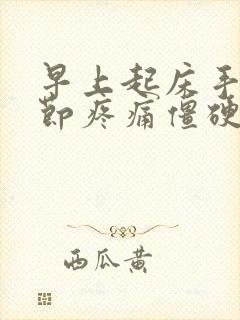 早上起床手
节疼痛僵硬
西瓜黄